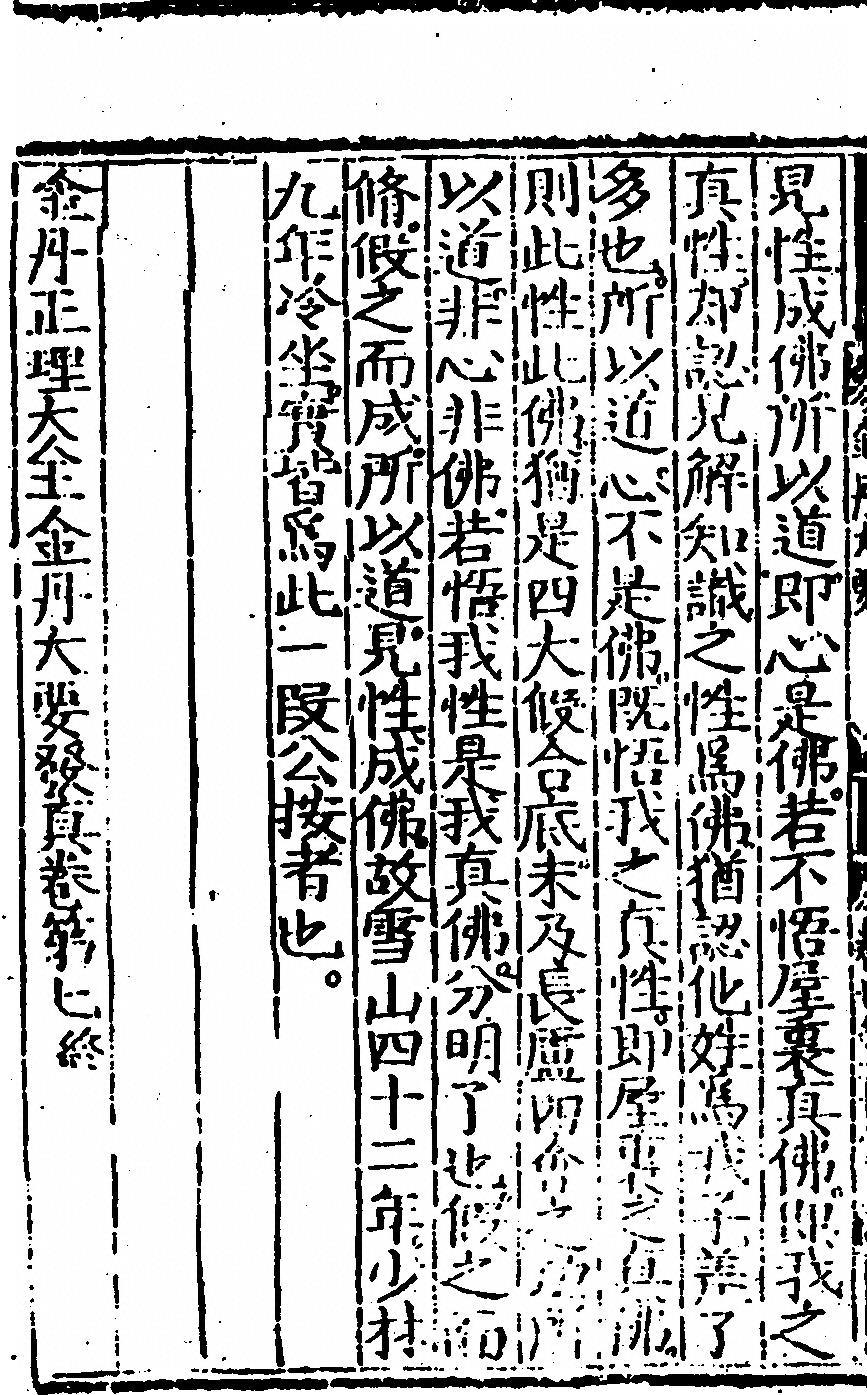 見性成佛所以道即心是佛。若不悟屋裏真佛。即我之
真性却認見解知識之性爲佛。猶認他姓爲我子差了
多也。所以道心不是佛。既悟我之真性。即屋裏之真佛。
則此性此佛猶是四大假合底未及長蘆
以道非心非佛。若悟我性是我真佛。分明了也。假之而
脩。假之而成。所以道。見性成佛。故雪山四十二年少林
九年冷坐。實皆爲此一段公按者也。
金丹正理大全金丹大要發真卷第七終